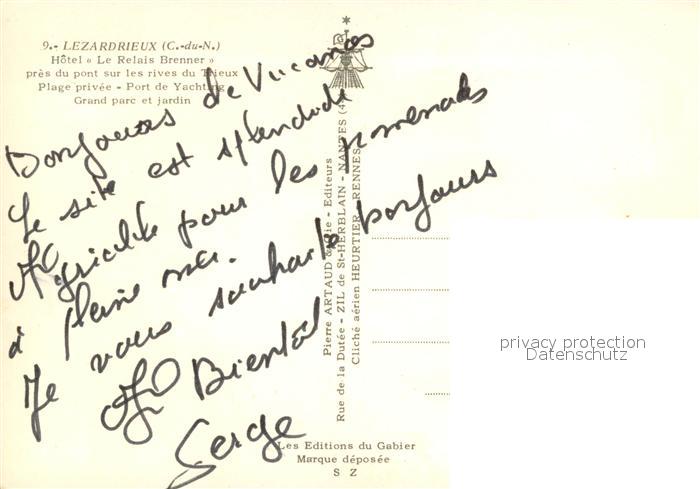 9.- LEZARDRIEUX (C.-du-N.)
Hôtel « Le Relais Brenner »
près du pont sur les rives du Trieux
Plage privée - Port de Yachting
Grand parc et jardin
Bonjours de Vacances
Le site est splendide
pour les promenades
à pleine mer.
Je vous souhaite bonjours
A Bientôt
Serge
Pierre ARTAUD & Cie - Editeurs
Rue de la Dutée - ZIL de St-HERBLAIN - NANTES (4
Cliché aérien HEURTIER - RENNES
Les Editions du Gabier
Marque déposée
S Z
privacy protection
Datenschutz